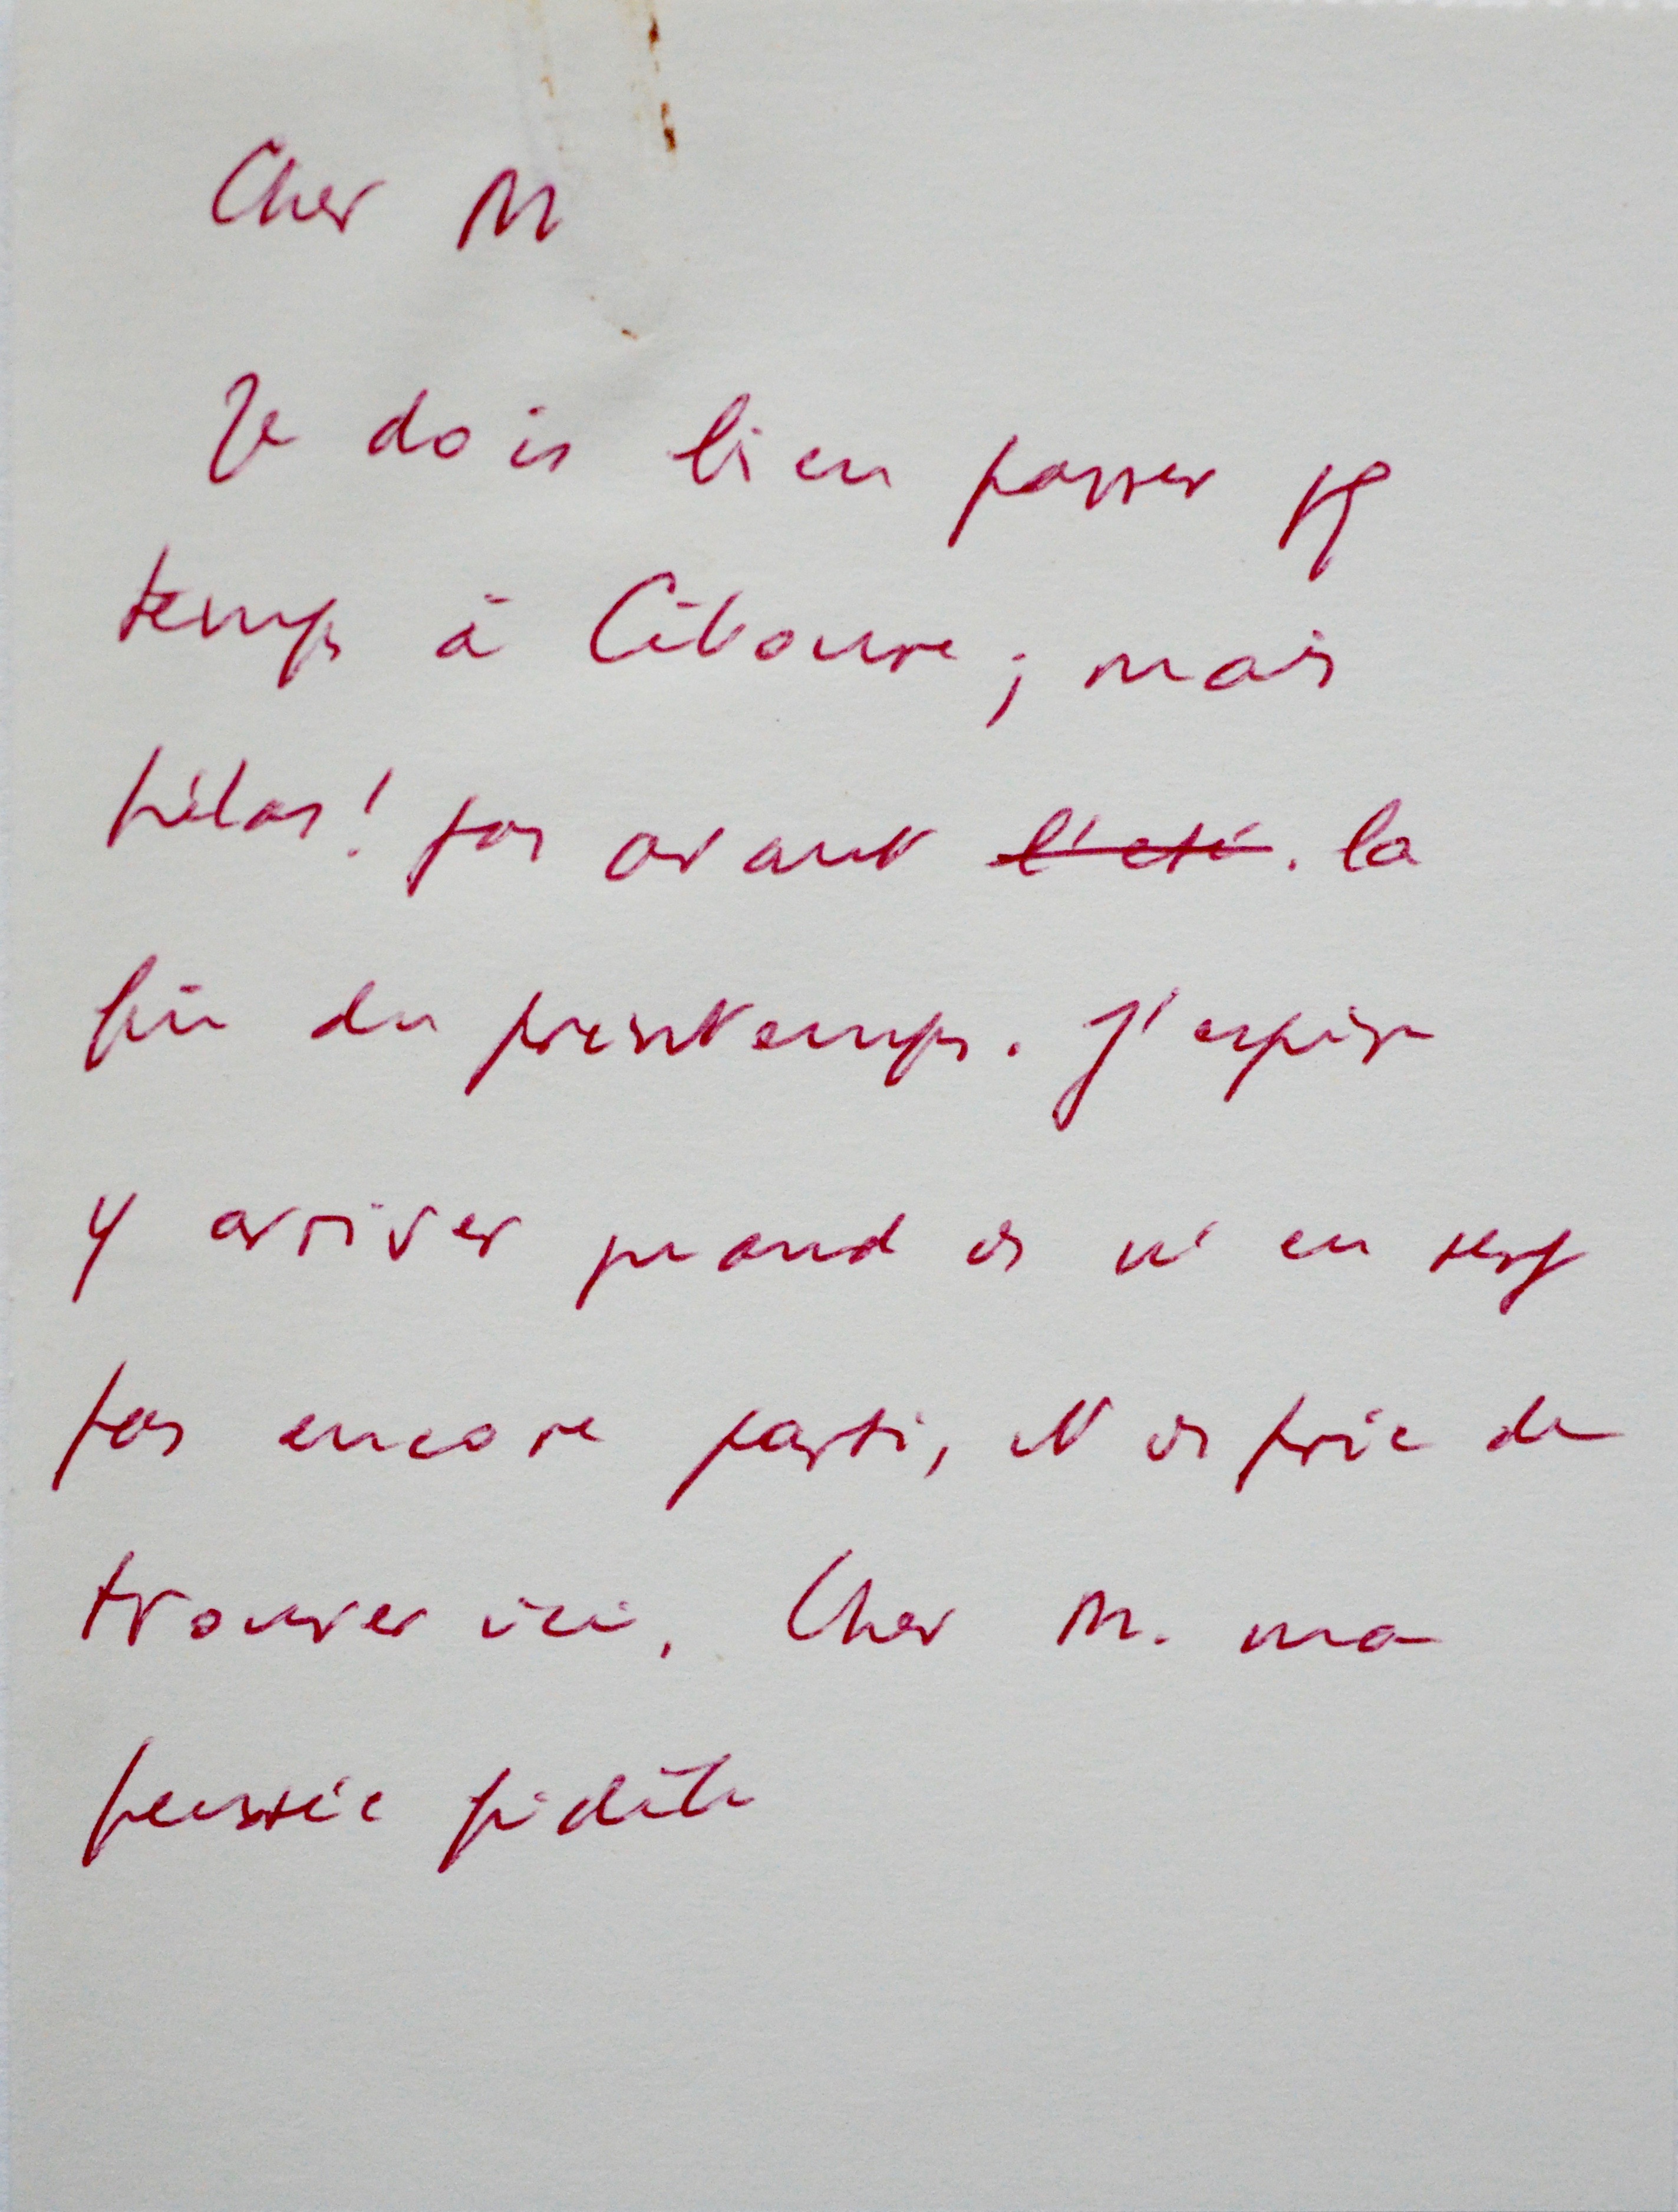 Cher M
Je dois bien passer qq
temps à Ciboure ; mais
hélas ! pas avant l'été. la
fin du printemps. J'espère
y arriver quand vs n'en serez
pas encore parti, et vs prie de
trouver ici, Cher M. ma
pensée fidèle